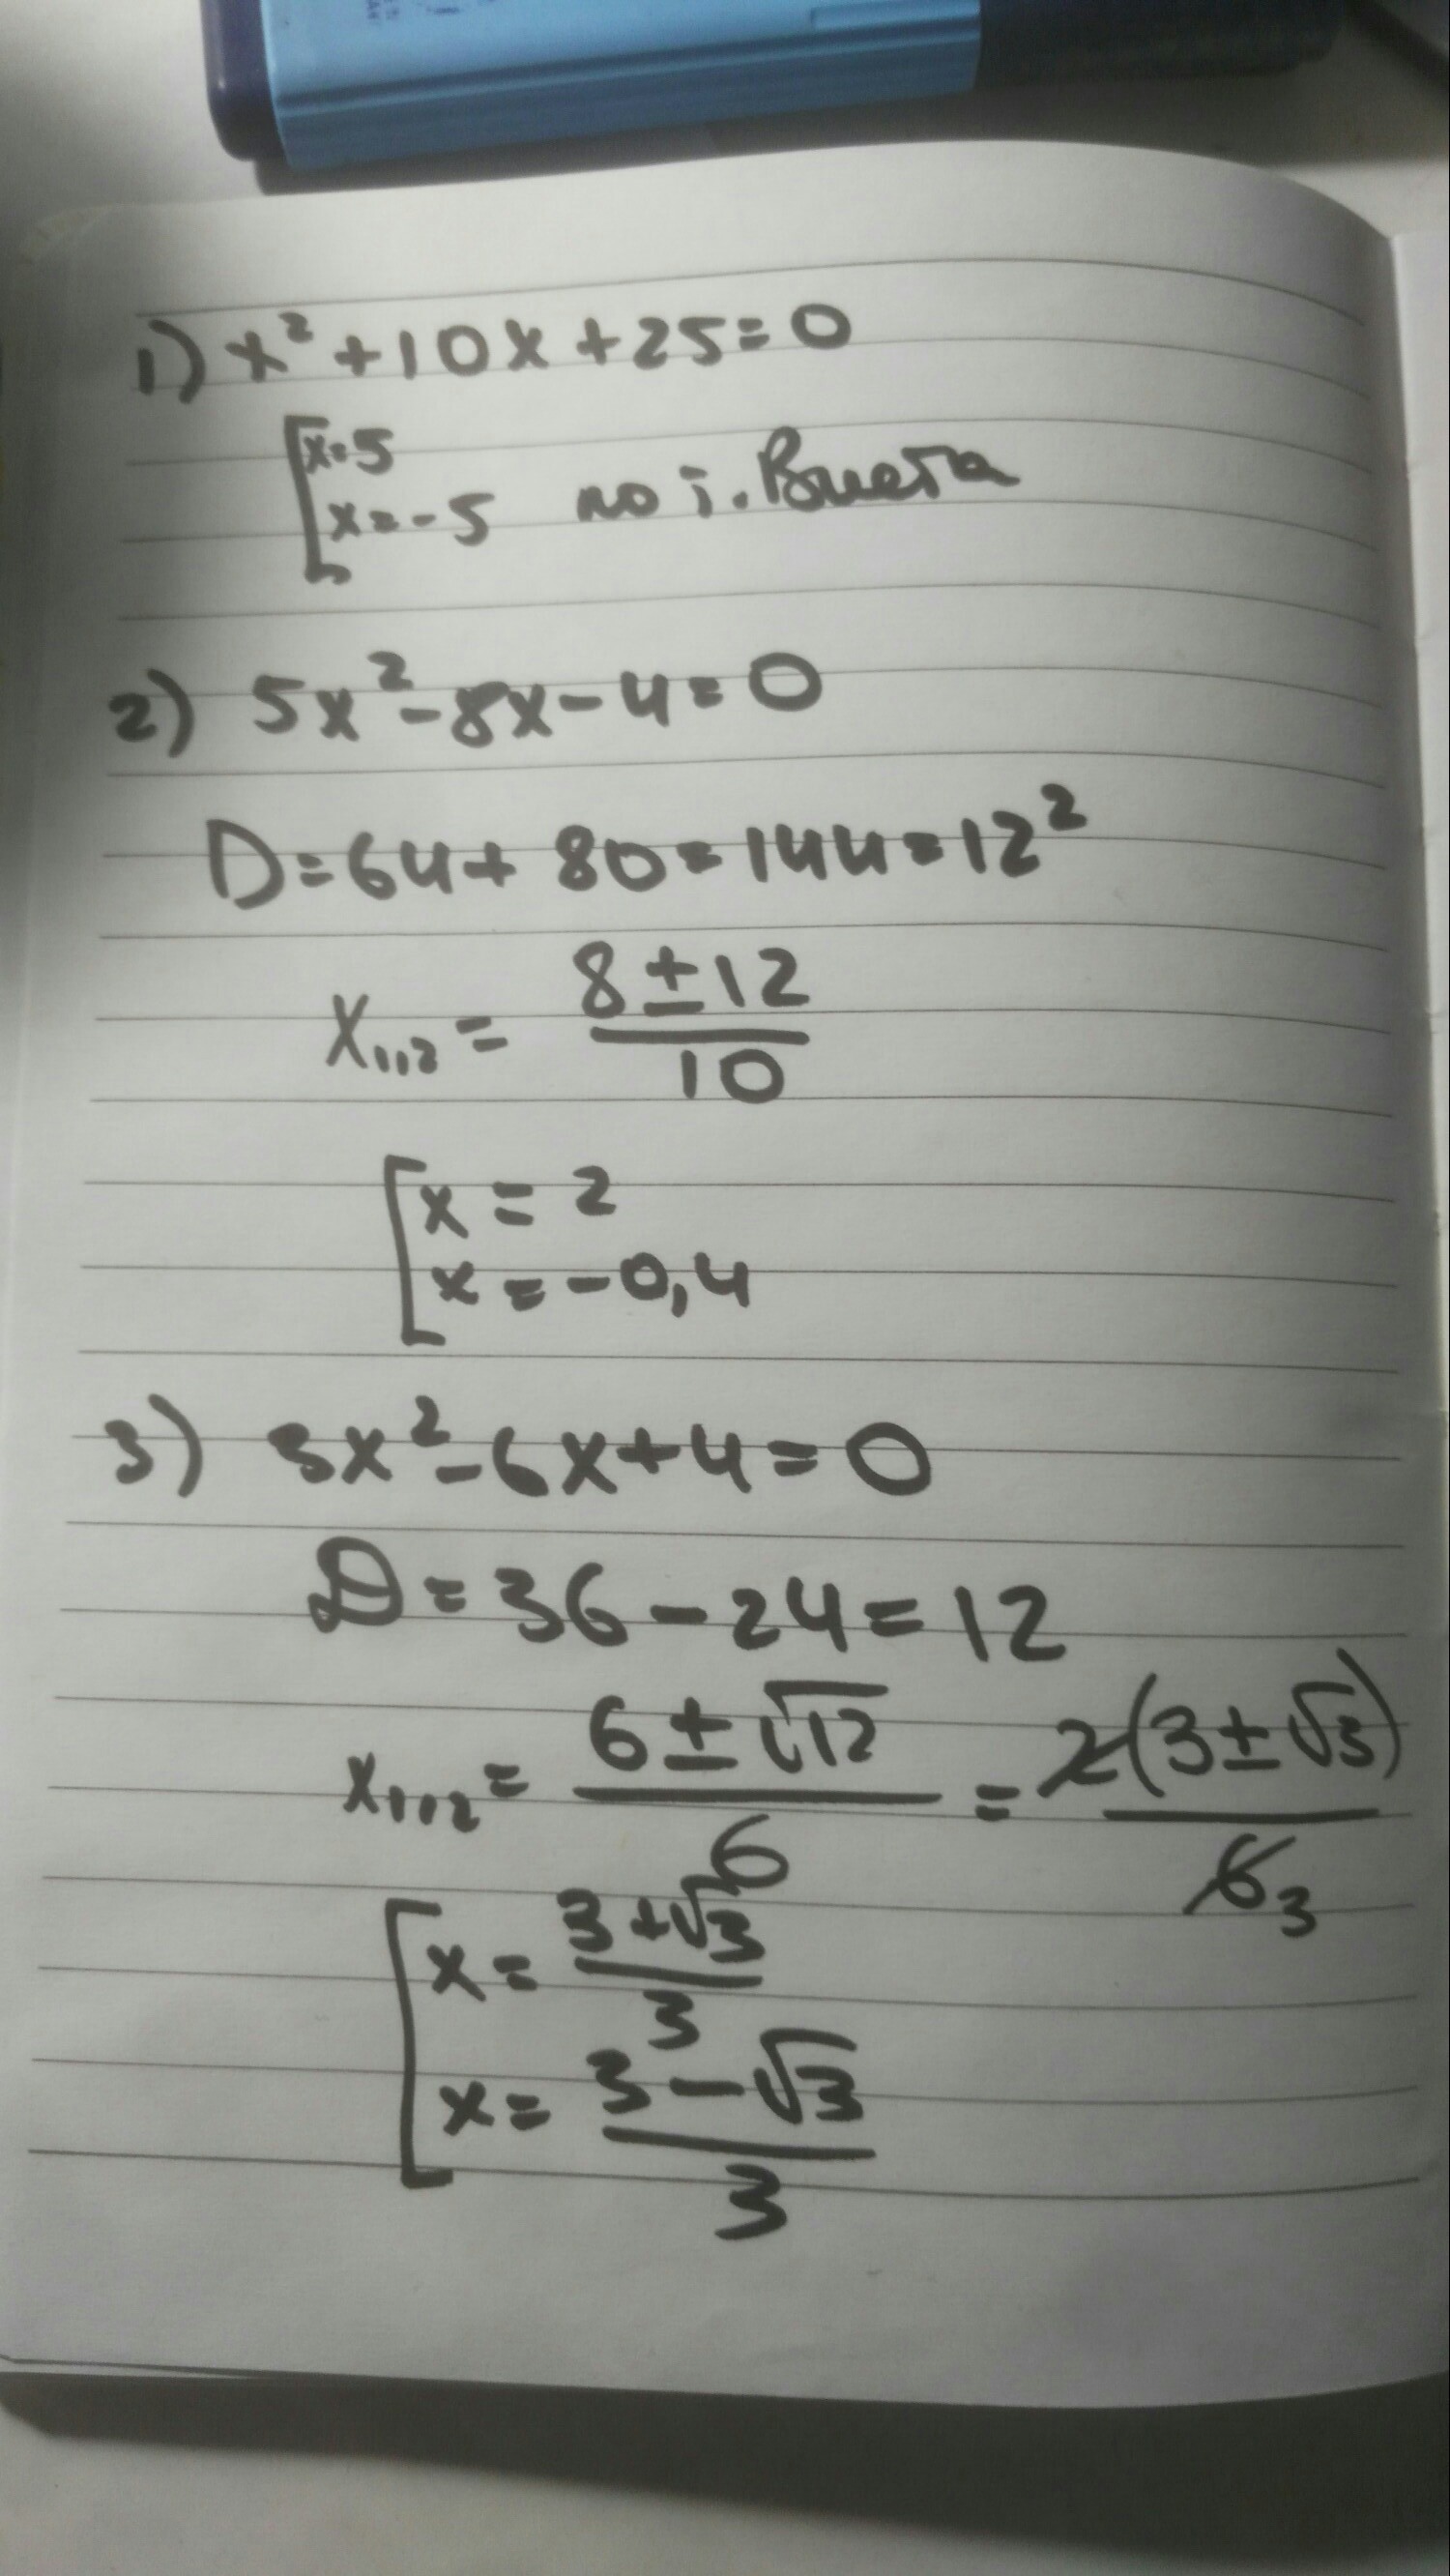 1) x² + 10x + 25 = 0
[x = 5
x = -5 по т. Виета
2) 5x² - 8x - 4 = 0
D = 64 + 80 = 144 = 12²
X₁,₂ = (8 ± 12)/10
[x = 2
x = -0,4
3) 3x² - 6x + 4 = 0
D = 36 - 24 = 12
x₁,₂ = (6 ± √12)/6 = 2(3 ± √3)/6 3
[x = (3 + √3)/3
x = (3 - √3)/3